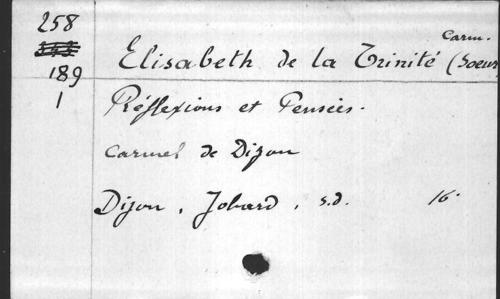 258
189
1
Carm.
Elisabeth de la Trinité (Soeur
Réflexions et Pensées.
Carmel de Dijon
Dijon, Jobard, s.d. 16°